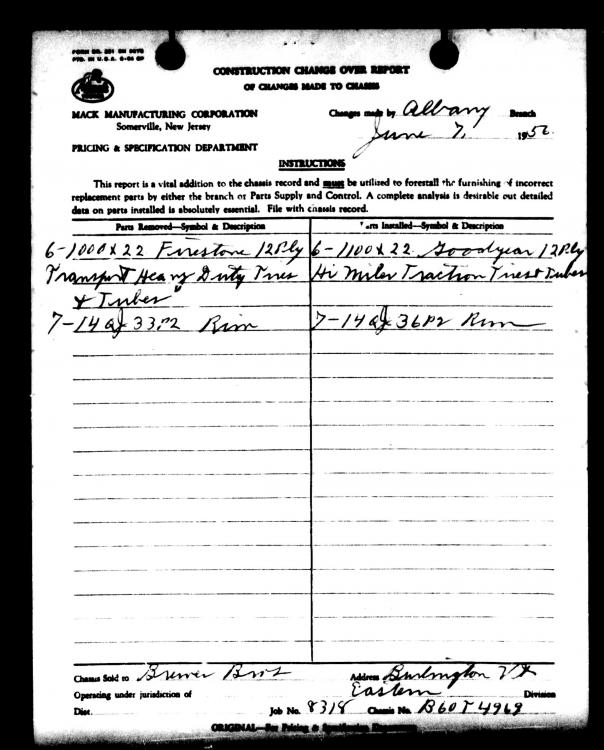 FORM NO. 251 SM SETS
PTD. IN U.S.A.
CONSTRUCTION CHANGE OVER REPORT
OF CHANGES MADE TO CHASSIS
MACK MANUFACTURING CORPORATION
Somerville, New Jersey
Changes made by Albany Branch
June 7, 1956
PRICING & SPECIFICATION DEPARTMENT
INSTRUCTIONS
This report is a vital addition to the chassis record and must be utilized to forestall the furnishing of incorrect
replacement parts by either the branch or Parts Supply and Control. A complete analysis is desirable but detailed
data on parts installed is absolutely essential. File with chassis record.
Parts Removed—Symbol & Description
Parts Installed—Symbol & Description
6-1000X22 Firestone 12Ply
Transport Heavy Duty Tires
& Tubes
7-14QJ33P2 Rim
6-1100X22 Goodyear 12Ply
Hi Miler Traction Tires & Tubes
7-14QJ36P2 Rim
Chassis Sold to Brewer Bros
Address Burlington Vt
Operating under jurisdiction of Eastern Division
Dist. Job No. 8318 Chassis No. B60T4969
ORIGINAL—For Pricing & Specification Department